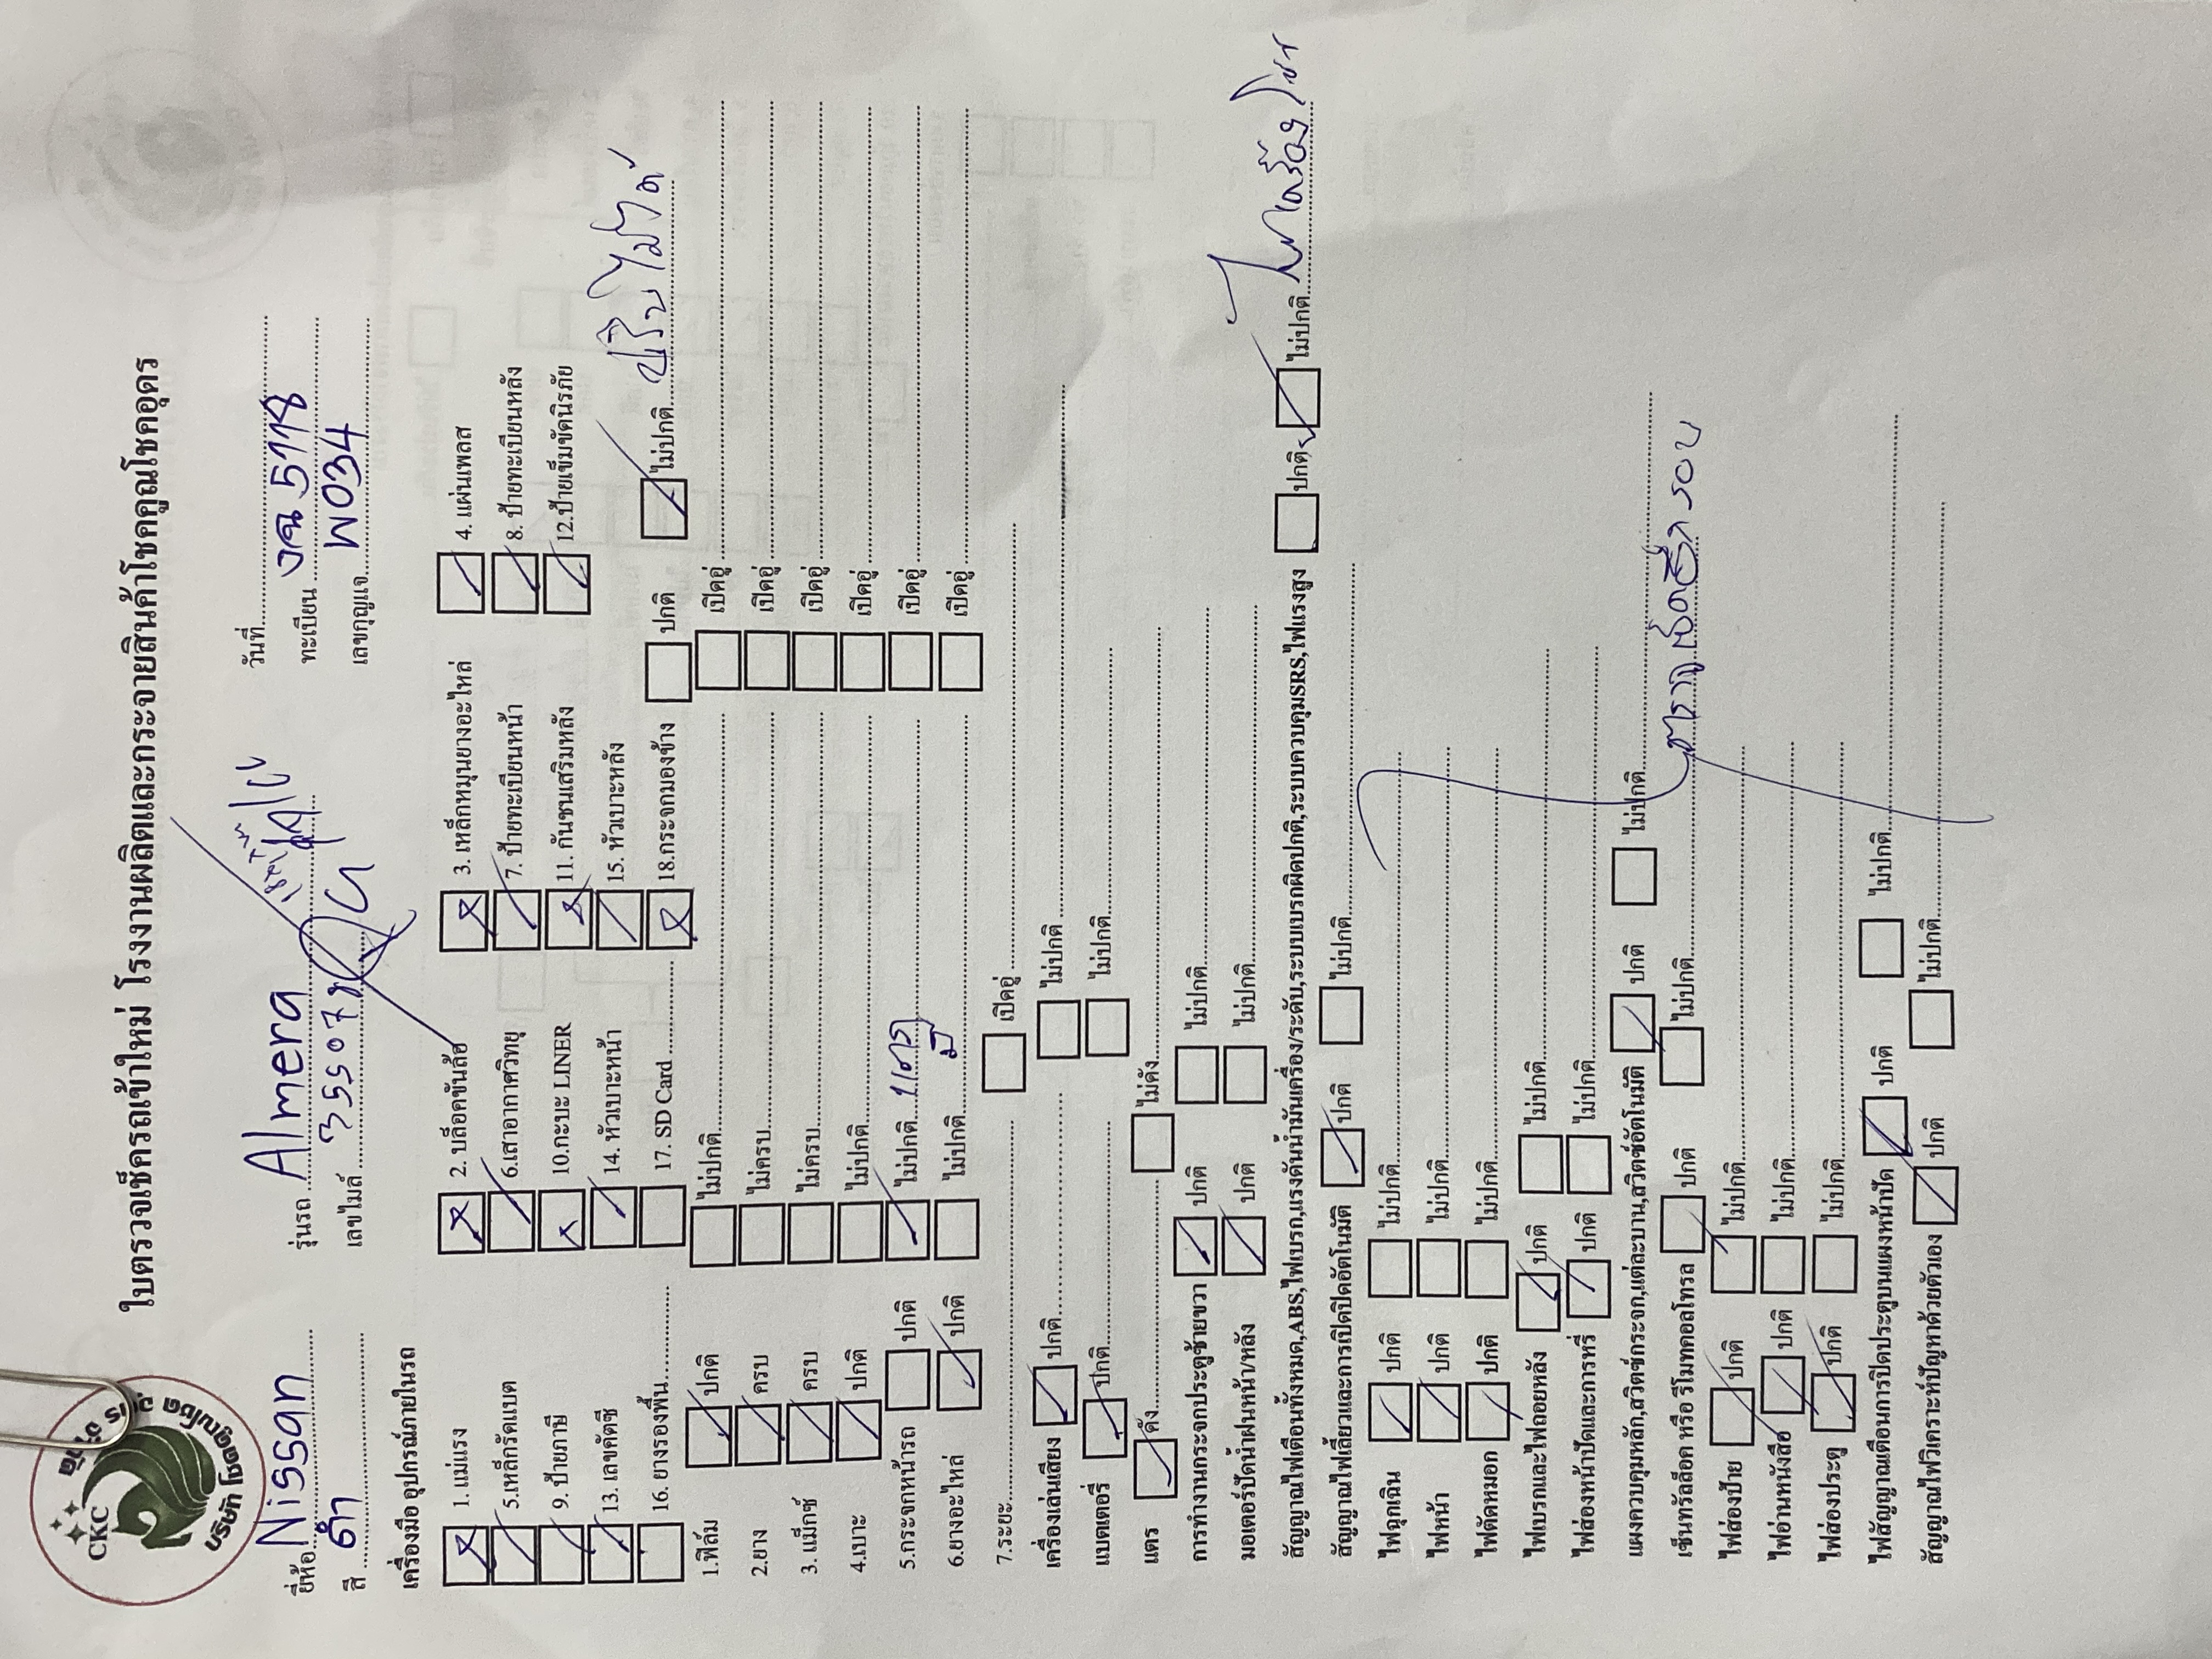 CKC
บริษัท โชคคูณโชค อุดร จำกัด
ใบตรวจเช็ครถเข้าใหม่ โรงงานผลิตและกระจายสินค้าโชคคูณโชคอุดร
ยี่ห้อ Nissan รุ่นรถ Almera วันที่
สี ดำ เลขไมล์ 35507 ทะเบียน 5118
เลขกุญแจ W034
เครื่องมือ อุปกรณ์ภายในรถ
1. แม่แรง 2. บล็อคขันล้อ 3. เหล็กหมุนยางอะไหล่ 4. แผ่นเพลส
5.เหล็กรัดแบต 6.เสาอากาศวิทยุ 7. ป้ายทะเบียนหน้า 8. ป้ายทะเบียนหลัง
9. ป้ายภาษี 10.กะบะ LINER 11. กันชนเสริมหลัง 12.ป้ายเข็มขัดนิรภัย
13. เลขคัตซี 14. หัวเบาะหน้า 15. หัวเบาะหลัง
16. ยางรองพื้น 17. SD Card 18.กระจกมองข้าง ปกติ ไม่ปกติ ปรับไม่ได้
1.ฟิล์ม ปกติ ไม่ปกติ เปิดอู่
2.ยาง ครบ ไม่ครบ เปิดอู่
3. แม็กซ์ ครบ ไม่ครบ เปิดอู่
4.เบาะ ปกติ ไม่ปกติ เปิดอู่
5.กระจกหน้ารถ ปกติ ไม่ปกติ เปิดอู่
6.ยางอะไหล่ ปกติ ไม่ปกติ มี เปิดอู่
7.ระยะ เปิดอู่
เครื่องเล่นเสียง ปกติ ไม่ปกติ
แบตเตอรี่ ปกติ ไม่ปกติ
แตร ดัง ไม่ดัง
การทำงานกระจกประตูซ้ายขวา ปกติ ไม่ปกติ
มอเตอร์ปัดน้ำฝนหน้า/หลัง ปกติ ไม่ปกติ
สัญญาณไฟเตือนทั้งหมด,ABS,ไฟเบรก,แรงดันน้ำมันเครื่อง/ระดับ,ระบบเบรกผิดปกติ,ระบบควบคุมSRS,ไฟแรงสูง ปกติ ไม่ปกติ ไฟเครื่องโชว์
สัญญาณไฟเลี้ยวและการเปิดปิดอัตโนมัติ ปกติ ไม่ปกติ
ไฟฉุกเฉิน ปกติ ไม่ปกติ
ไฟหน้า ปกติ ไม่ปกติ
ไฟตัดหมอก ปกติ ไม่ปกติ
ไฟเบรกและไฟถอยหลัง ปกติ ไม่ปกติ
ไฟส่องหน้าปัดและการหรี่ ปกติ ไม่ปกติ
แผงควบคุมหลัก,สวิตซ์กระจก,แต่ละบาน,สวิตซ์อัตโนมัติ ปกติ ไม่ปกติ
เซ็นทรัลล็อค หรือ รีโมทคอลโทรล ปกติ ไม่ปกติ
ไฟส่องป้าย ปกติ ไม่ปกติ
ไฟอ่านหนังสือ ปกติ ไม่ปกติ
ไฟส่องประตู ปกติ ไม่ปกติ
ไฟสัญญาณเตือนการปิดประตูบนแผงหน้าปัด ปกติ ไม่ปกติ
สัญญาณไฟวิเคราะห์ปัญหาด้วยตัวเอง ปกติ ไม่ปกติ